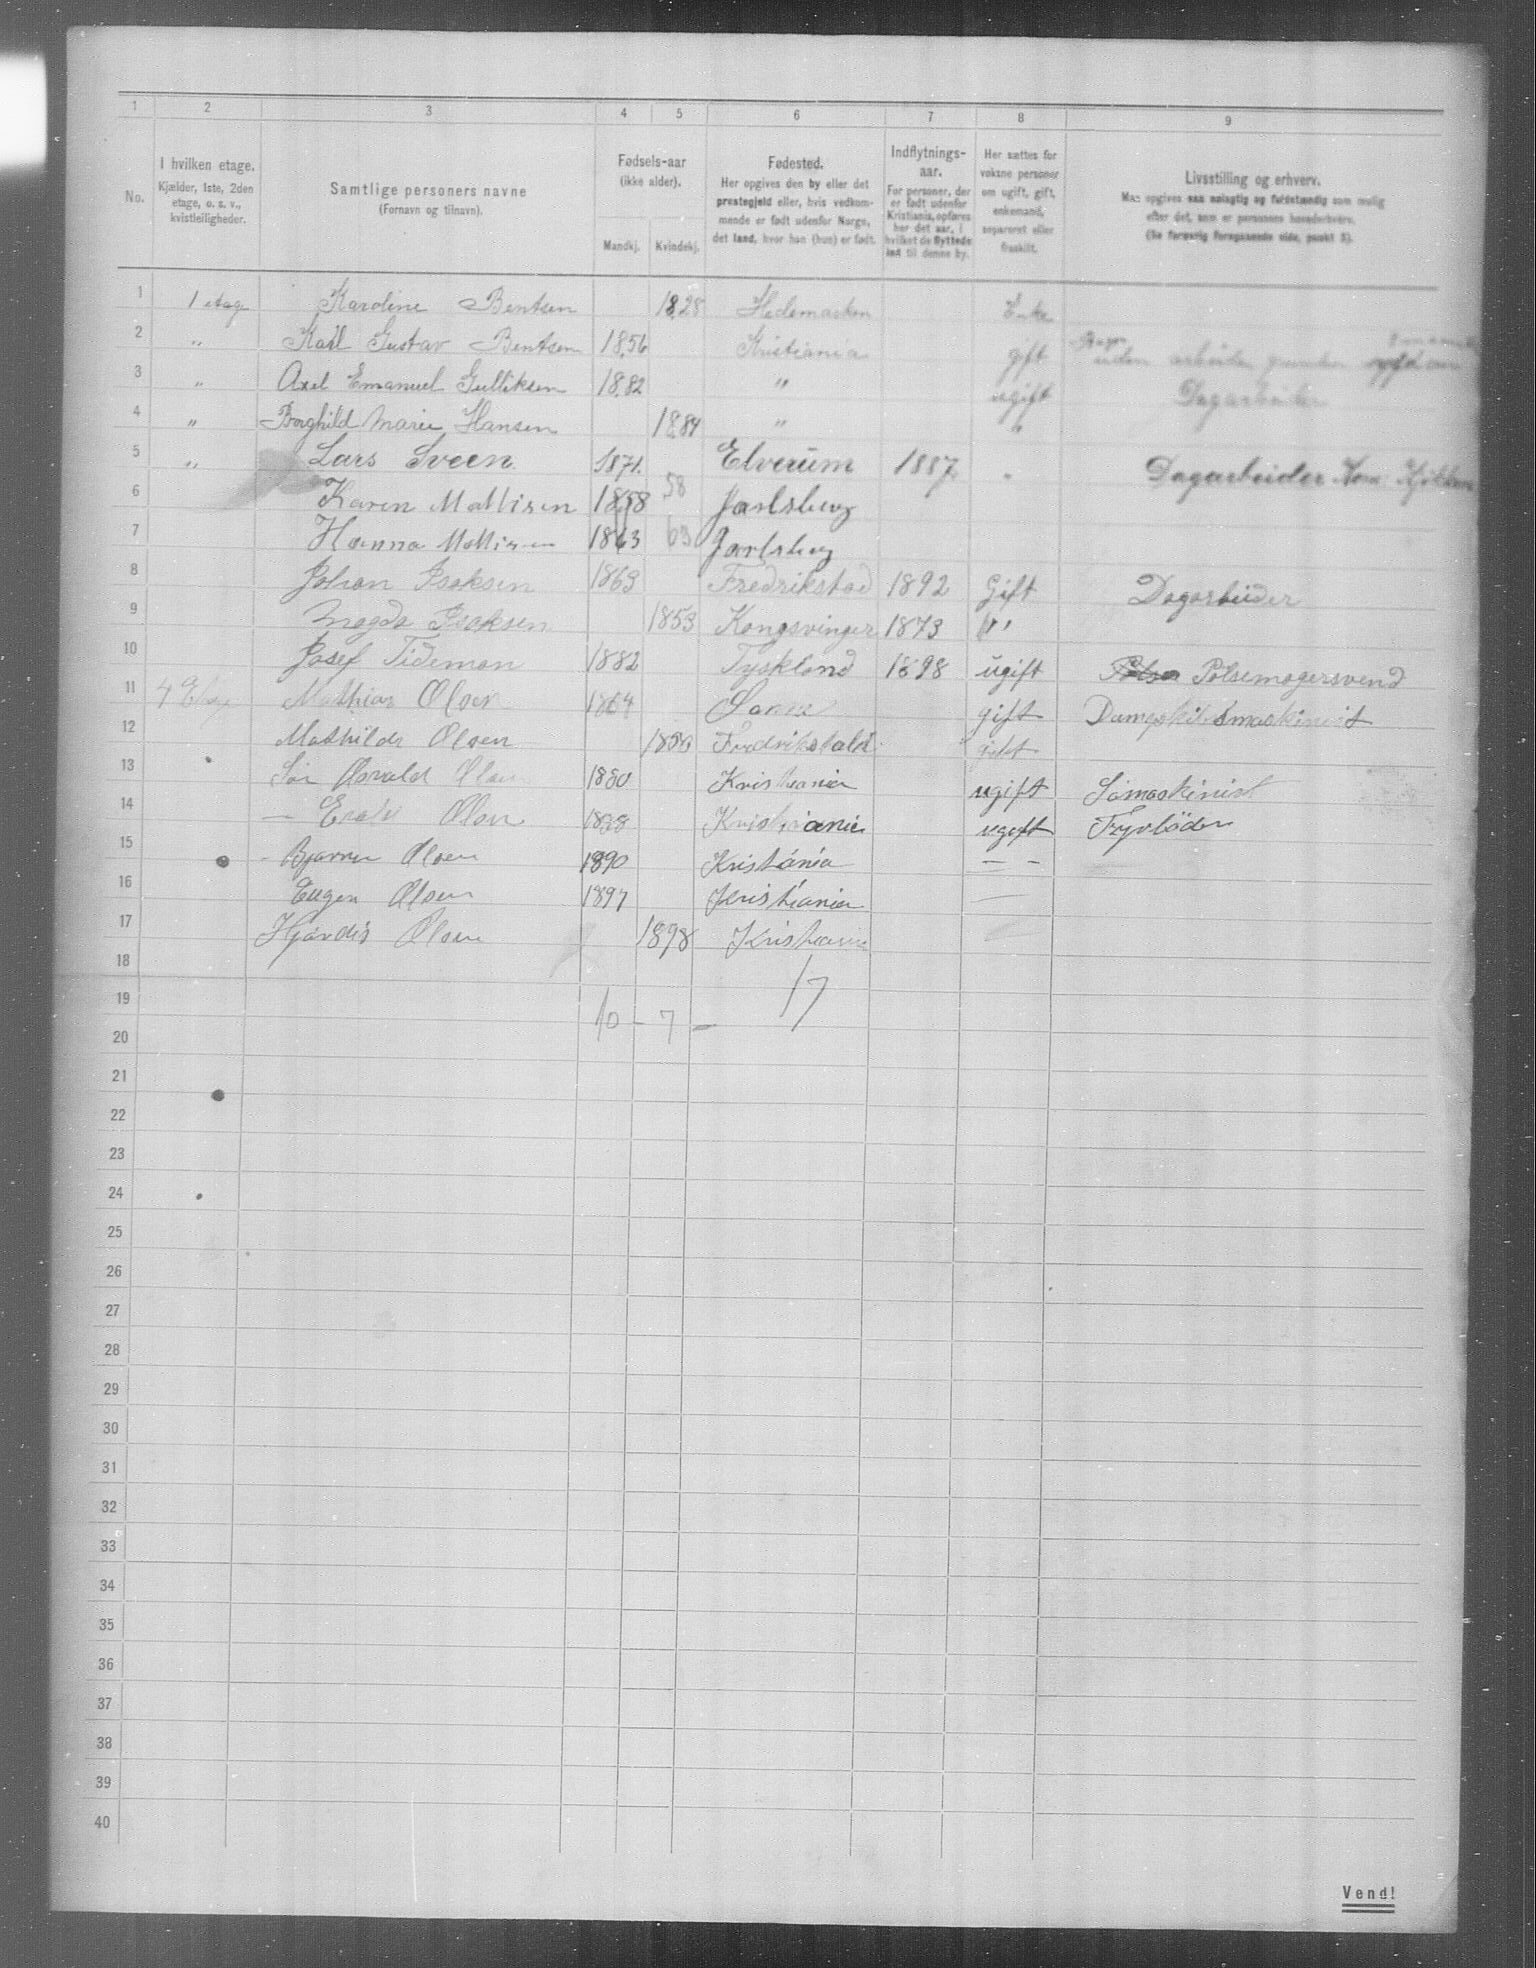 1 2 3 4 5 6 7 8 9
No.
I hvilken etage.
Kjælder, 1ste, 2den
etage, o. s. v.,
kvistleiligheder.
Samtlige personers navne
(Fornavn og tilnavn).
Fødsels-aar
(ikke alder).
Mandkj. Kvindekj.
Fødested.
Her opgives den by eller det
prestegjeld eller, hvis vedkom-
mende er født udenfor Norge,
det land, hvor han (hun) er født.
Indflytnings-
aar.
For personer, der
er født udenfor
Kristiania, opføres
her det aar, i
hvilket de flyttede
ind til denne by.
Her sættes for
voksne personer
om ugift, gift,
enkemand,
separeret eller
fraskilt.
Livsstilling og erhverv.
Man opgives saa nøiagtig og fuldstændig som mulig
efter det, som er personens hovederhverv.
(Se forøvrig foregaaende side, punkt 5).
1 1 etag Karoline Bentsen 1828 Hedemarken Enke
2 " Karl Gustav Bentsen 1856 Kristiania gift uden arbeide
3 " Axel Emanuel Gulliksen 1882 " ugift Dagarbeider
4 " Borghild Marie Hansen 1884 " "
5 " Lars Sveen 1871. Elverum 1887 " Dagarbeider
6 Karen Mathisen 1858 58 Jarlsberg
7 Hanna Mathisen 1863 63 Jarlsberg
8 Johan Isaksen 1863 Fredrikstad 1892 Gift Dagarbeider
9 Magda Isaksen 1853 Kongsvinger 1873 "
10 Josef Tideman 1882 Tyskland 1898 ugift Pölsemagersvend
11 4 Etag Mathias Olsen 1864 gift Dampskibsmaskinist
12 Mathilde Olsen 1850 Fredrikstald gift
13 Osvald Olsen 1880 Kristiania ugift Sömaskinist
14 — Olsen 1888 Kristiania ugift Fyrböder
15 Bjarne Olsen 1890 Kristiania — —
16 Eugen Olsen 1897 Kristiania —
17 Hjördis Olsen 1898 Kristiania
18
19 17
20 10 - 7 -
21
22
23
24
25
26
27
28
29
30
31
32
33
34
35
36
37
38
39
40
Vend!